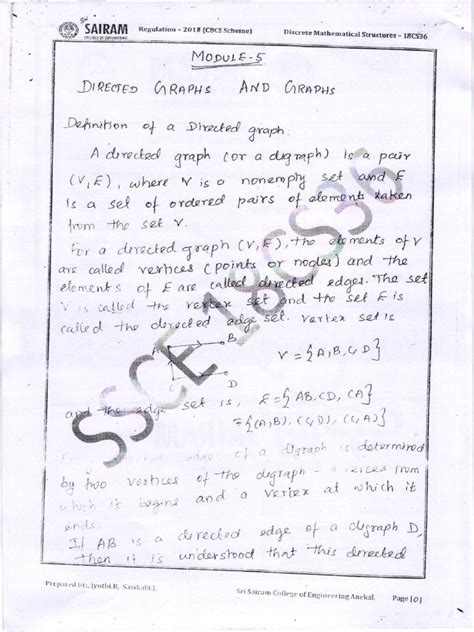 Sri
SAIRAM
COLLEGE OF ENGINEERING
Regulation - 2018 (CBCS Scheme)
Discrete Mathematical Structures - 18CS36
MODULE-5
DIRECTED GRAPHS AND GRAPHS
Definition of a Directed graph:
A directed graph (or a digraph) is a pair
(V,E), where V is a nonempty set and E
is a set of ordered pairs of elements taken
from the set V.
For a directed graph (V,E), the elements of V
are called vertices (points or nodes) and the
elements of E are called directed edges. The set
V is called the vertex set and the set E is
called the directed edge set. vertex set is
A B
V = {A,B,C,D}
C D
and the edge set is, E = {AB, CD, CA}
= {(A,B), (C,D), (C,A)}
directed edge of a digraph is determined
by two vertices of the digraph - a vertex from
which it begins and a vertex at which it
ends.
If AB is a directed edge of a digraph D,
then it is understood that this directed
SSCE 18CS36
Prepared by:, Jyothi.R, Sasikala.J,
Sri Sairam College of Engineering Anekal.
Page |0|